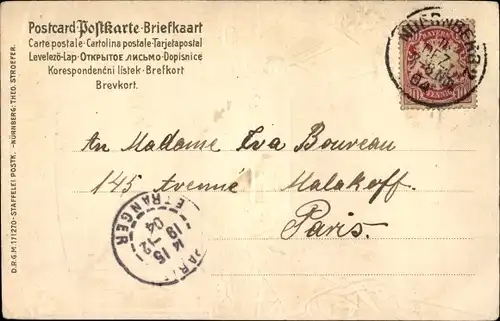 Postcard Postkarte-Briefkaart
Carte postale-Cartolina postale-Tarjetapostal
Levelező-Lap-Открытое письмо-Dopisnice
Korespondenční lístek-Brefkort
Brevkort.
BAYERN
An Madame Eva Bouveau
145 Avenue Malakoff.
Paris.
PARIS
14 15
18-12
04
ETRANGER
D.R.G.M. 171270-STAFFELEI POSTK. -NÜRNBERG: THEO. STROEFER.